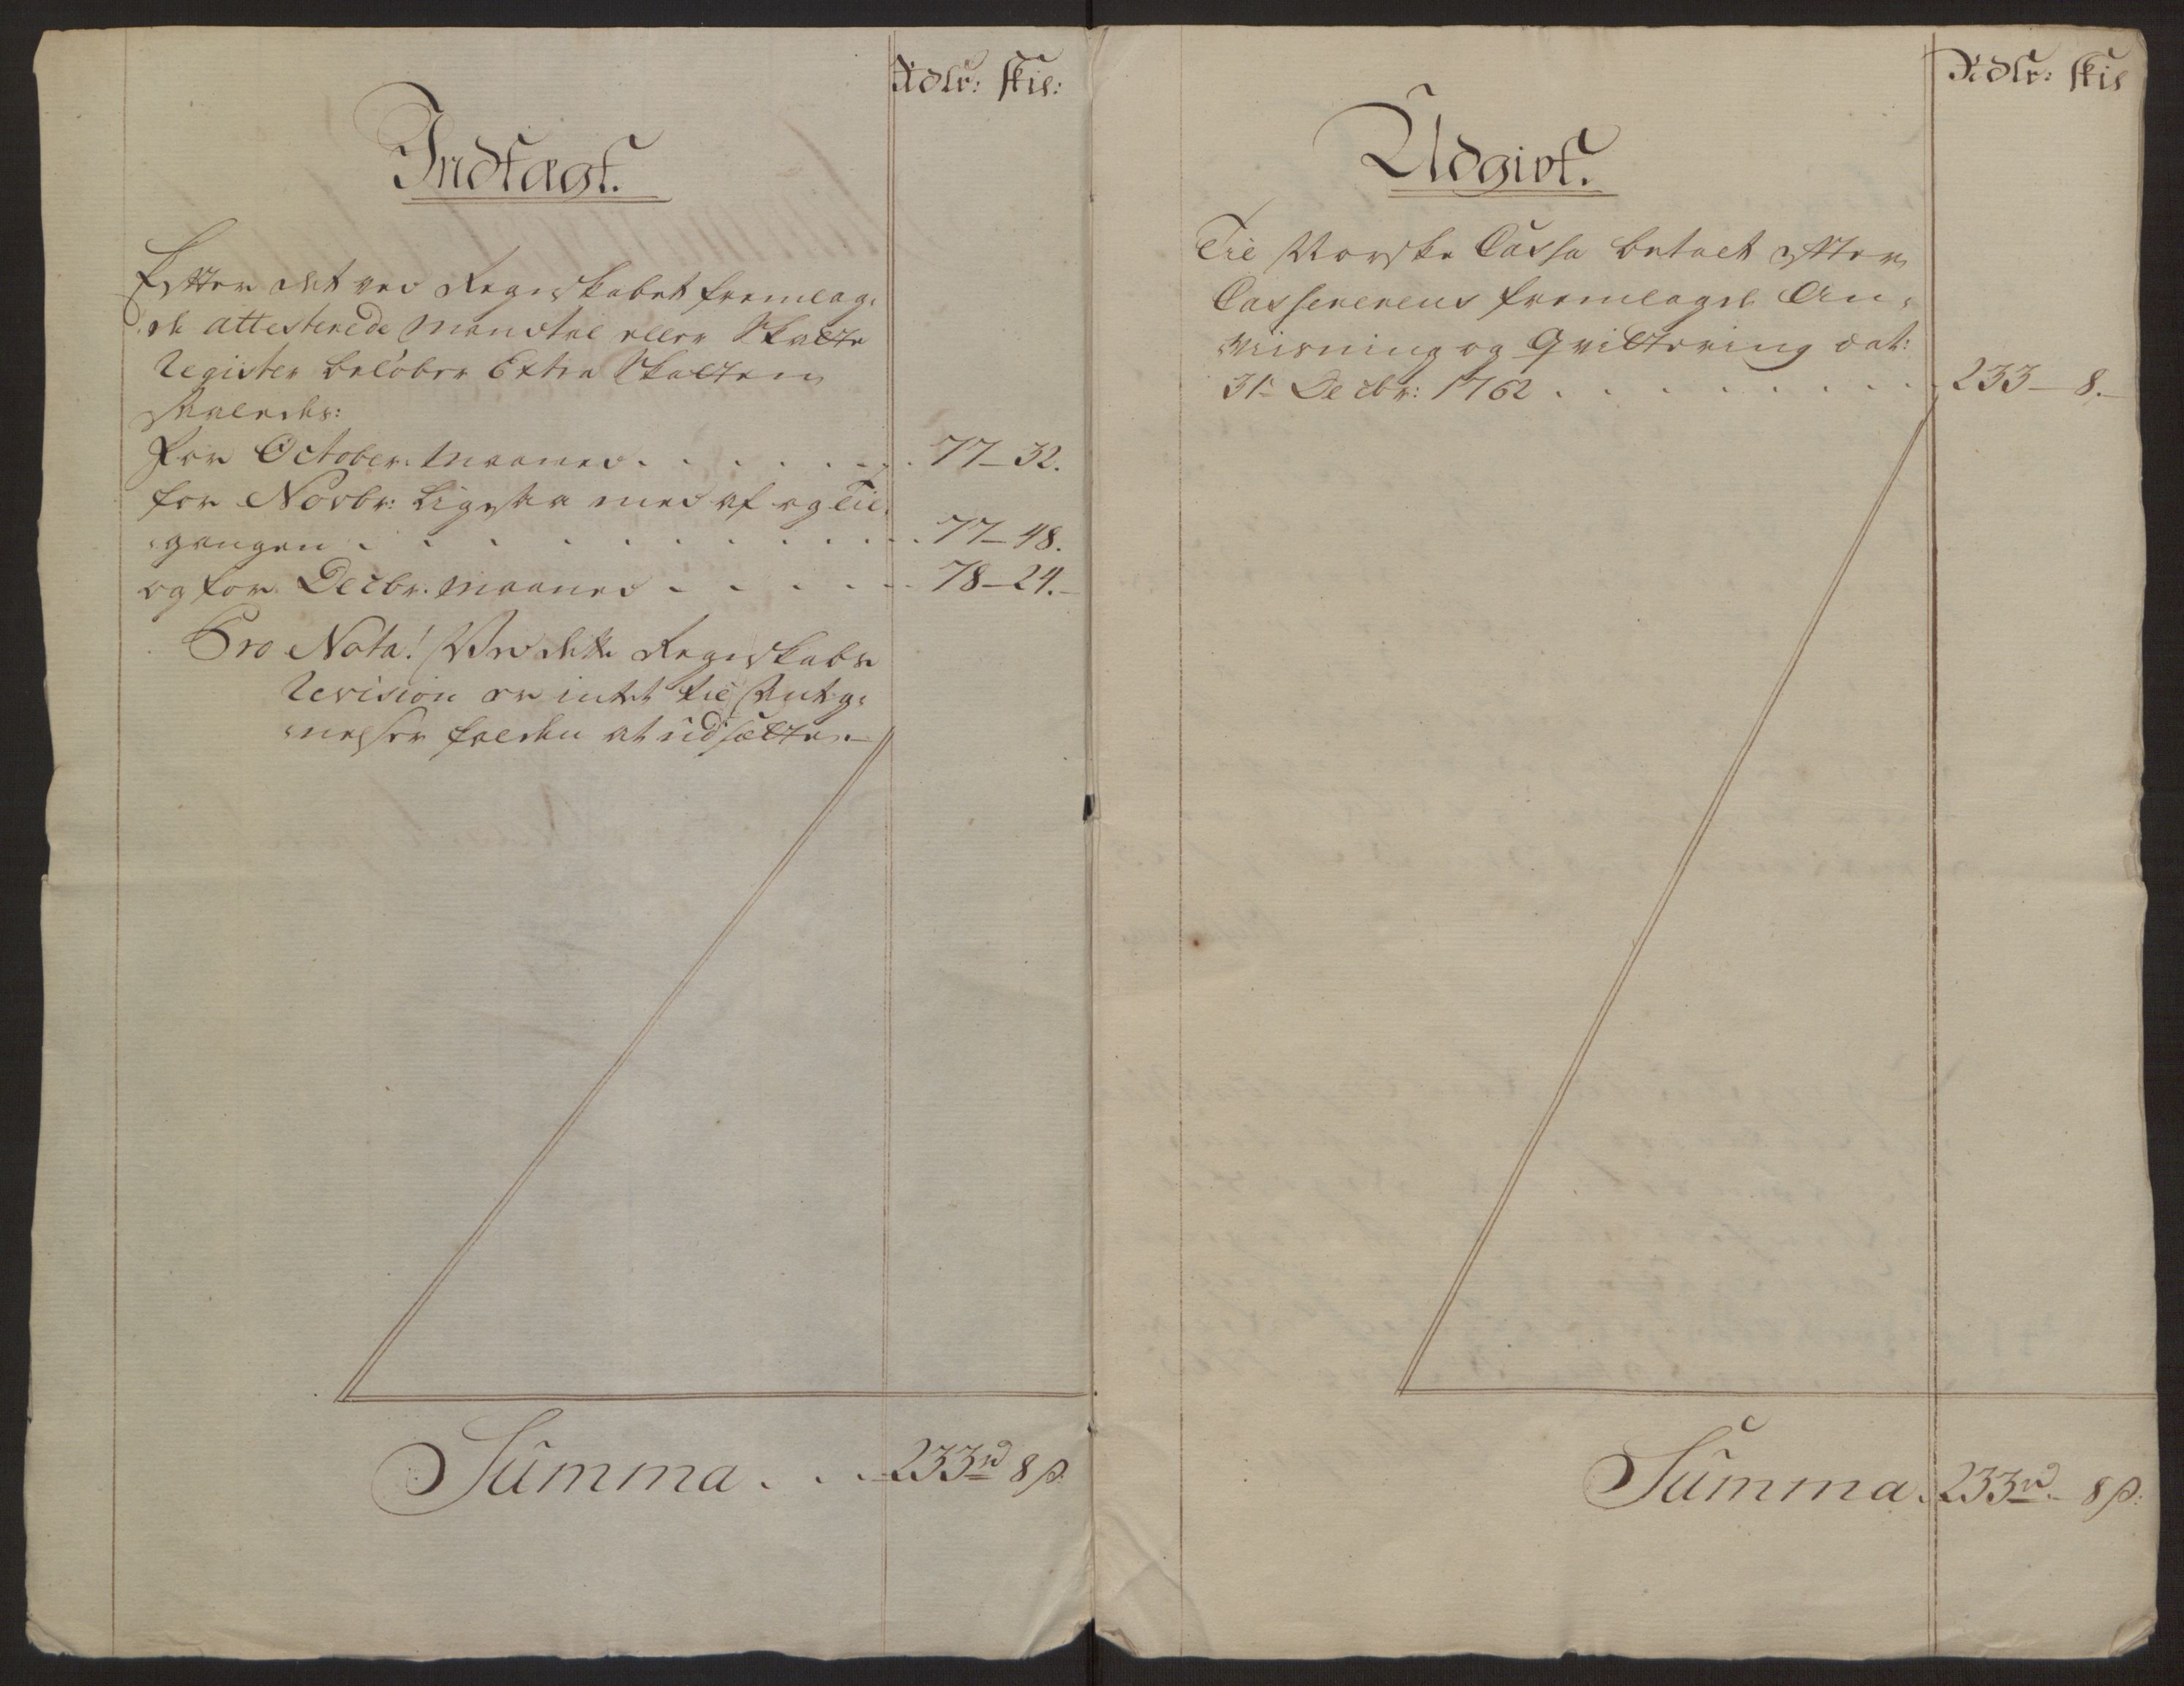 Rdlr: skil:
Indtægt.
Efter det ved Regnskabet fremlag:
de attesterede Mandtal eller Skatte
Register beløber Extra Skatten
saaledes:
For October: Maaned . . . . . . . 77 - 32.
for Novbr: Ligesaa med af og Til:
gangen . . . . . . . . . . 77 - 48.
og for Decbr. Maaned . . . . . 78 - 24.
Pro Nota! Ved dette Regnskabs
Revision er intet til Anteg:
nelser falden at udsætte.
Summa . . . 233rd 8 s.
Rdlr: skil
Udgivt.
Til Norske Cassa betalt efter
Cassererens fremlagde An:
viisning og Qvittering dat:
31te Decbr: 1762 . . . . . . . . 233 - 8.
Summa . 233rd - 8 s: